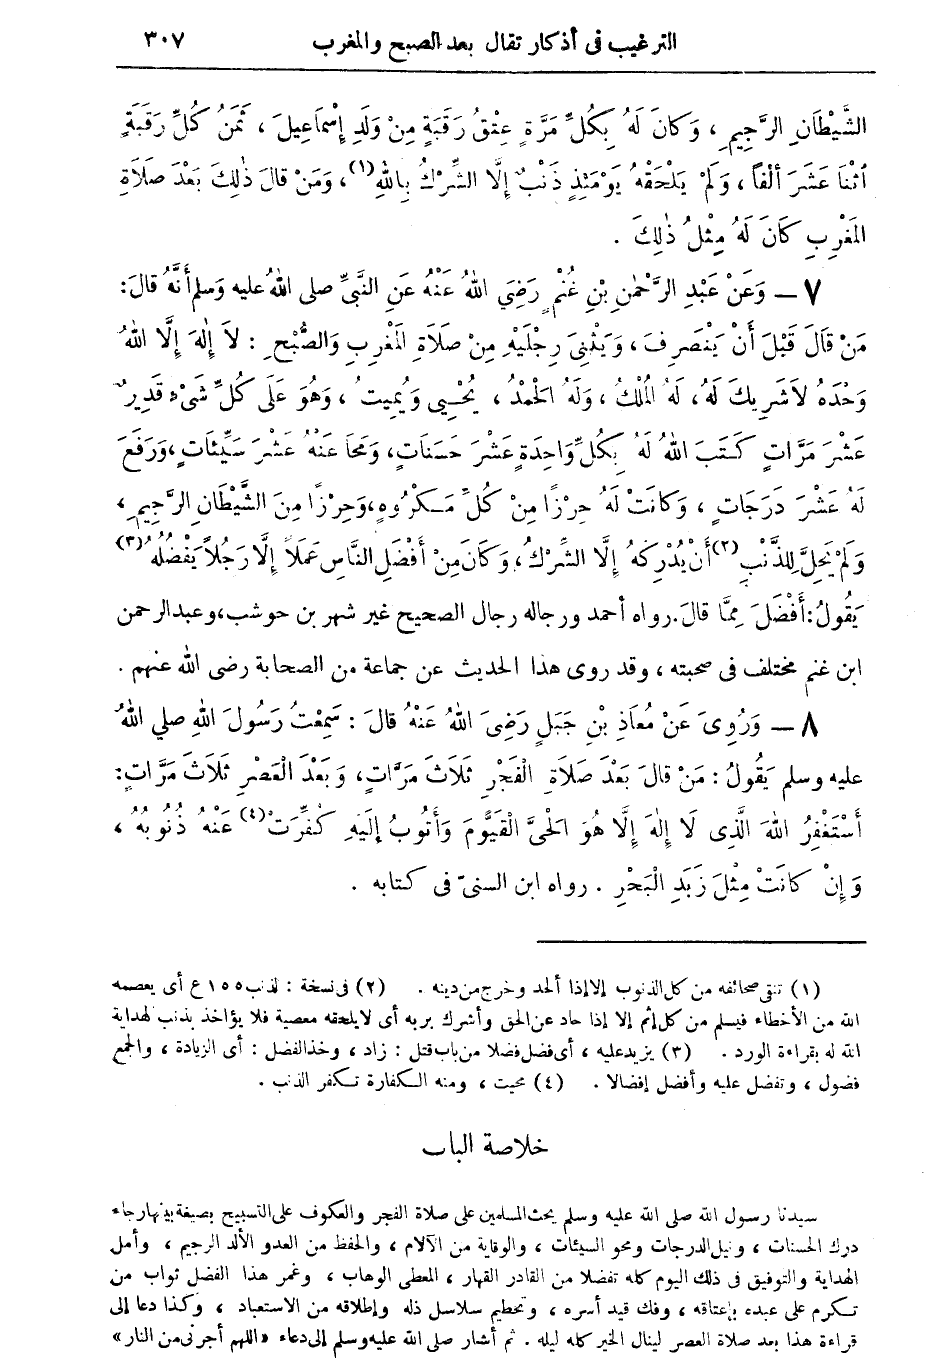 الترغيب فى أذكار تقال بعد الصبح والمغرب ٣٠٧
الشَّيْطَانِ الرَّجِيمِ ، وَكانَ لَهُ بِكُلِّ مَرَّةٍ عِتْقُ رَقَبَةٍ مِنْ وَلَدِ إِسْمَاعِيلَ ، ثَمَنُ كُلِّ رَقَبَةٍ
اُثْنَا عَشَرَ أَلْفًا ، وَلَمْ يَلْحَقْهُ يَوْمَئِذٍ ذَنْبٌ إِلَّا الشِّرْكُ بِاللهِ(١) ، وَمَنْ قالَ ذٰلِكَ بَعْدَ صَلَاةِ
المَغْرِبِ كَانَ لَهُ مِثْلُ ذٰلِكَ .
٧ — وَعَنْ عَبْدِ الرَّحْمٰنِ بْنِ غُنْمٍ رَضِيَ اللهُ عَنْهُ عَنِ النَّبِيِّ صلى اللهُ عليه وَسلم أَنَّهُ قالَ :
مَنْ قَالَ قَبْلَ أَنْ يَنْصَرِفَ ، وَيَثْنِىَ رِجْلَيْهِ مِنْ صَلَاةِ المَغْرِبِ وَالصُّبْحِ : لاَ إِلٰهَ إِلَّا اللهُ
وَحْدَهُ لاَشَرِيكَ لَهُ ، لَهُ المُلْكُ ، وَلَهُ الحَمْدُ ، يُحْيِى وَيُمِيتُ ، وَهُوَ عَلَى كُلِّ شَىْءٍ قَدِيرٌ
عَشْرَ مَرَّاتٍ كَتَبَ اللهُ لَهُ بِكُلِّ وَاحِدَةٍ عَشْرَ حَسَنَاتٍ ، وَمَحَا عَنْهُ عَشْرَ سَيِّئَاتٍ ، وَرَفَعَ
لَهُ عَشْرَ دَرَجَاتٍ ، وَكَانَتْ لَهُ حِرْزًا مِنْ كُلِّ مَكْرُوهٍ ، وَحِرْزًا مِنَ الشَّيْطَانِ الرَّجِيمِ ،
وَلَمْ يَحِلَّ لِلذَّنْبِ(٢) أَنْ يُدْرِكَهُ إِلَّا الشِّرْكُ ، وَكَانَ مِنْ أَفْضَلِ النَّاسِ عَمَلاً إِلَّا رَجُلاً يَفْضُلُهُ(٣)
يَقُولُ : أَفْضَلَ مِمَّا قالَ . رواه أحمد ورجاله رجال الصحيح غير شهر بن حوشب ، وعبدالرحمن
ابن غنم مختلف فى صحبته ، وقد روى هذا الحديث عن جماعة من الصحابة رضى الله عنهم .
٨ — وَرُوِىَ عَنْ مُعَاذِ بْنِ جَبَلٍ رَضِىَ اللهُ عَنْهُ قالَ : سَمِعْتُ رَسُولَ اللهِ صلى اللهُ
عليه وسلم يَقُولُ : مَنْ قالَ بَعْدَ صَلَاةِ الْفَجْرِ ثَلَاثَ مَرَّاتٍ ، وَبَعْدَ الْعَصْرِ ثَلَاثَ مَرَّاتٍ :
أَسْتَغْفِرُ اللهَ الَّذِى لَا إِلٰهَ إِلَّا هُوَ الحَىَّ الْقَيُّومَ وَأَتُوبُ إِلَيْهِ كُفِّرَتْ(٤) عَنْهُ ذُنُوبُهُ ،
وَإِنْ كَانَتْ مِثْلَ زَبَدِ الْبَحْرِ . رواه ابن السنىّ فى كتابه .
(١) تنقى صحائفه من كل الذنوب إلا إذا ألحد وخرج من دينه . (٢) فى نسخة : لذنب ١٥٥ ع أى يعصمه
الله من الأخطاء فيسلم من كل إثم إلا إذا حاد عن الحق وأشرك بربه أى لا يلحقه معصية فلا يؤاخذ بذنب لهداية
الله له بقراءة الورد . (٣) يزيد عليه ، أى فضل فضلا من باب قتل : زاد ، وخذ الفضل : أى الزيادة ، والجمع
فضول ، وتفضل عليه وأفضل إفضالا . (٤) محيت ، ومنه الكفارة تكفر الذنب .
خلاصة الباب
سيدنا رسول الله صلى الله عليه وسلم يحث المسلمين على صلاة الفجر والعكوف على التسبيح بصيغة بينها رجاء
درك الحسنات ، ونيل الدرجات ومحو السيئات ، والوقاية من الآلام ، والحفظ من العدو الألد الرجيم ، وأمل
الهداية والتوفيق فى ذلك اليوم كله تفضلا من القادر القهار ، المعطى الوهاب ، وغمر هذا الفضل ثواب من
تكرم على عبده بإعتاقه ، وفك قيد أسره ، وتحطيم سلاسل ذله وإطلاقه من الاستعباد ، وكذا دعا إلى
قراءة هذا بعد صلاة العصر لينال الخير كله ليله . ثم أشار صلى الله عليه وسلم إلى دعاء «اللهم أجرنى من النار»